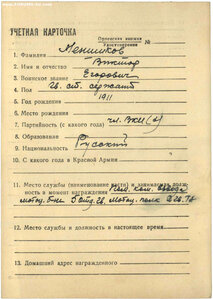 УЧЕТНАЯ КАРТОЧКА
Орденская книжка
Удостоверение №
1. Фамилия Меншиков
2. Имя и отчество Виктор
Егорович
3. Воинское звание гв. ст. сержант
4. Пол
5. Год рождения 1911
6. Место рождения
7. Партийность (с какого года) чл. ВКП(б)
8. Образование
9. Национальность Русский
10. С какого года в Красной Армии
11. Место службы (наименование части) и занимаемая должность в момент награждения
12. Место службы и должность в настоящее время
13. Домашний адрес награжденного